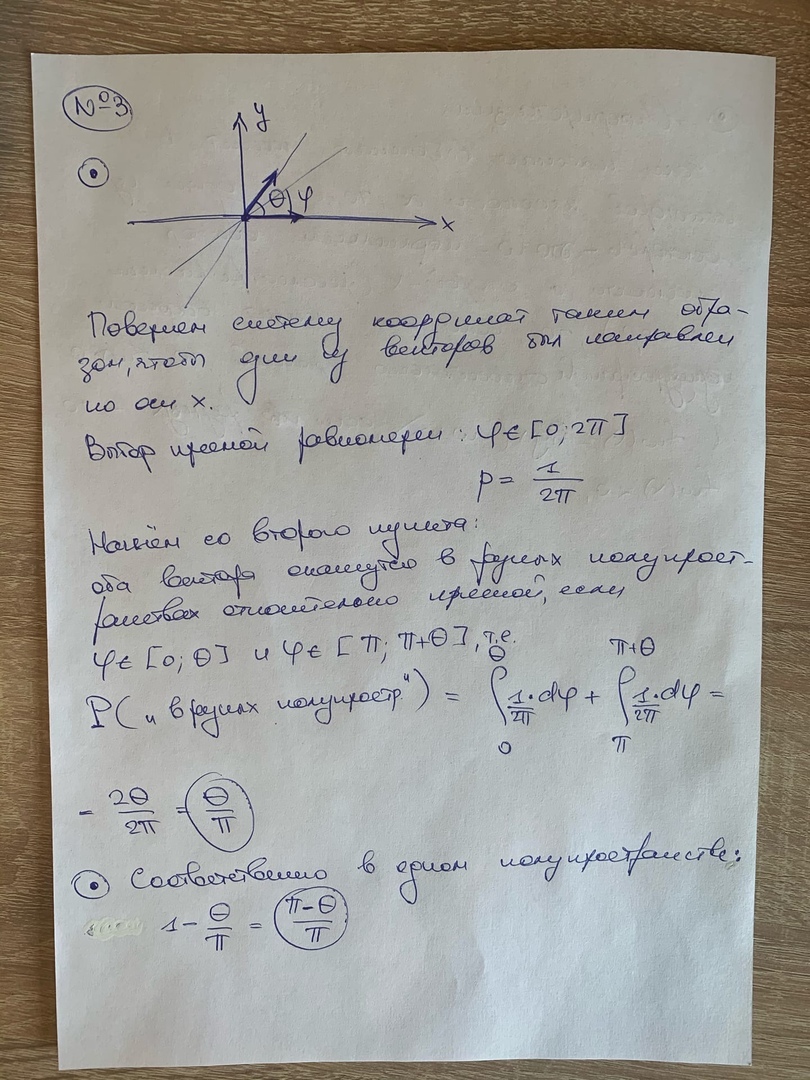 №3
y
θ φ
x
Повернем систему координат таким обра-
зом, чтобы один из векторов был направлен
по оси x.
Выбор прямой равномерен: φ ∈ [0; 2π]
p = 1/2π
Начнём со второго пункта:
оба вектора окажутся в разных полупрост-
ранствах относительно прямой, если
φ ∈ [0; θ] и φ ∈ [π; π+θ], т.е.
P(„в разных полупростр.") = ∫₀^θ 1/2π · dφ + ∫_π^{π+θ} 1/2π · dφ =
= 2θ/2π = θ/π
Соответственно в одном полупространстве:
1 - θ/π = (π-θ)/π